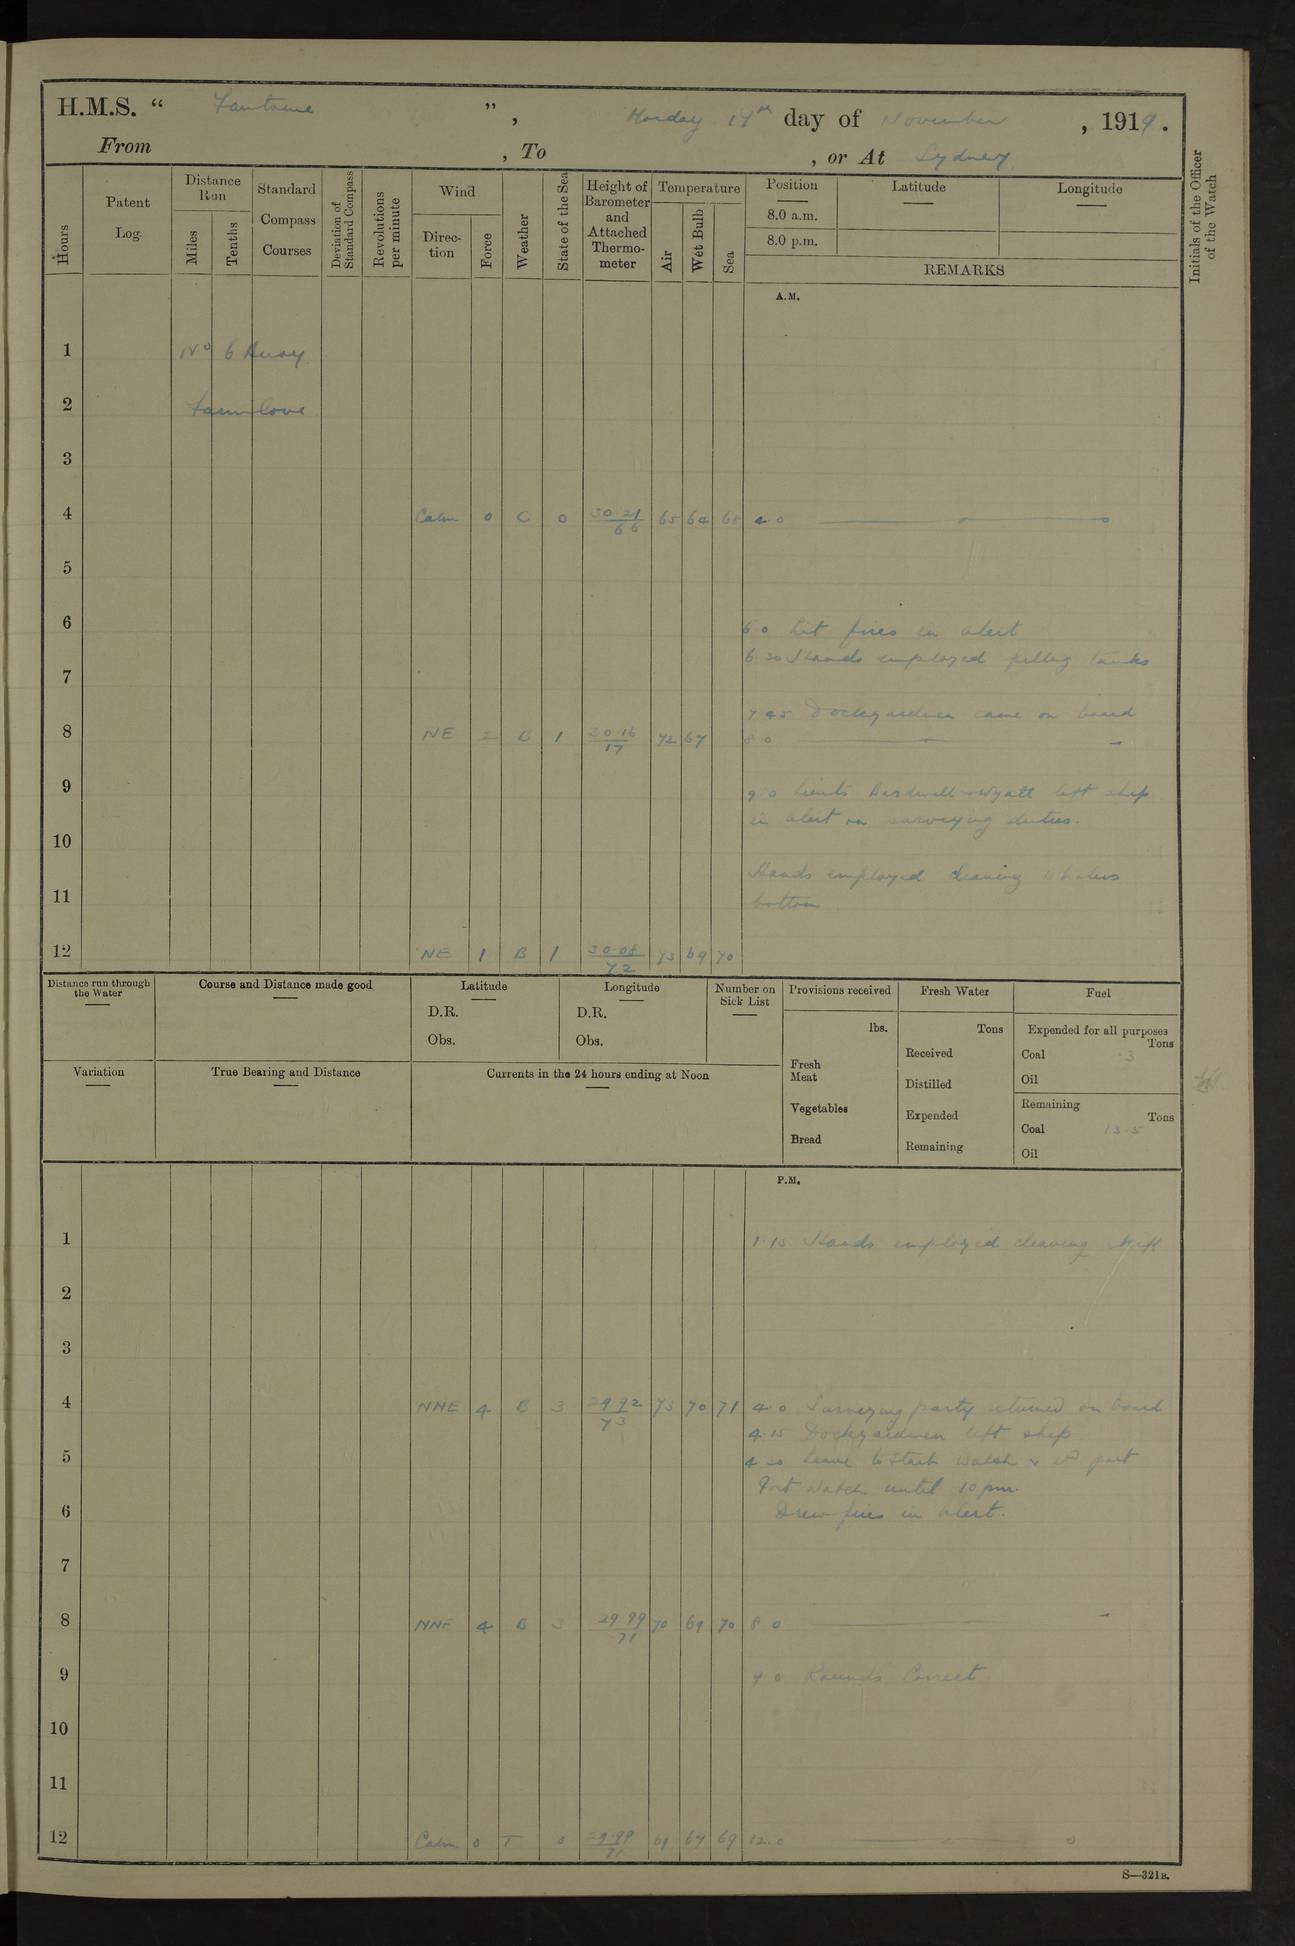 H.M.S. “ Fantome ” , Monday 17th day of November , 1919.
From , To , or At Sydney
Hours
Patent Log.
Distance Run
Miles
Tenths
Standard Compass Courses
Deviation of Standard Compass
Revolutions per minute
Wind
Direction
Force
Weather
State of the Sea
Height of Barometer and Attached Thermometer
Temperature
Air
Wet Bulb
Sea
Position
8.0 a.m.
8.0 p.m.
Latitude
Longitude
REMARKS
Initials of the Officer of the Watch
A.M.
1 No 6 Buoy
2 Farm Cove
3
4 Calm 0 C 0 30.21/66 65 64 68 4.0
5
6 6.0 Lit fires in Alert
6.30 Hands employed filling tanks
7
7.45 Dockyardmen came on board
8 NE 2 B 1 30.16/17 72 67 8.0
9 9.0 Lieuts Bardwell Wyatt left ship
in Alert on surveying duties.
10
Hands employed cleaning whalers
11 bottom
12 NE 1 B 1 30.08/72 73 69 70
Distance run through the Water
Course and Distance made good
Latitude
D.R.
Obs.
Longitude
D.R.
Obs.
Number on Sick List
Provisions received
lbs.
Fresh Meat
Vegetables
Bread
Fresh Water
Tons
Received
Distilled
Expended
Remaining
Fuel
Expended for all purposes
Tons
Coal .3
Oil
Remaining
Tons
Coal 13.5
Oil
Variation
True Bearing and Distance
Currents in the 24 hours ending at Noon
P.M.
1 1.15 Hands employed cleaning ship
2
3
4 NNE 4 B 3 29.92/73 73 70 71 4.0 Surveying party returned on board
4.15 Dockyardmen left ship
5 4.30 Leave to Starb Watch & 2nd part
Port Watch until 10 pm.
6 Drew fires in Alert.
7
8 NNE 4 B 3 29.99/71 70 69 70 8.0
9 9.0 Rounds Correct
10
11
12 Calm 0 T 0 29.99/71 69 67 69 12.0
S—321B.